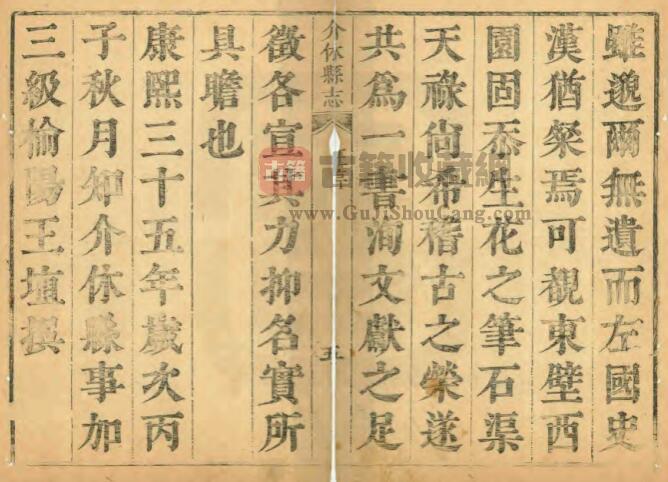 雖邈爾無遺而左國史
漢猶粲焉可覩東壁西
園固忝生花之筆石渠
天祿尙希稽古之榮遂
共爲一書洵文獻之足
介休縣志
五
徵各宣其力抑名實所
具瞻也
康熙三十五年歲次丙
子秋月知介休縣事加
三級榆陽王埴撰
古籍
古籍收藏網
www.GuJiShouCang.com